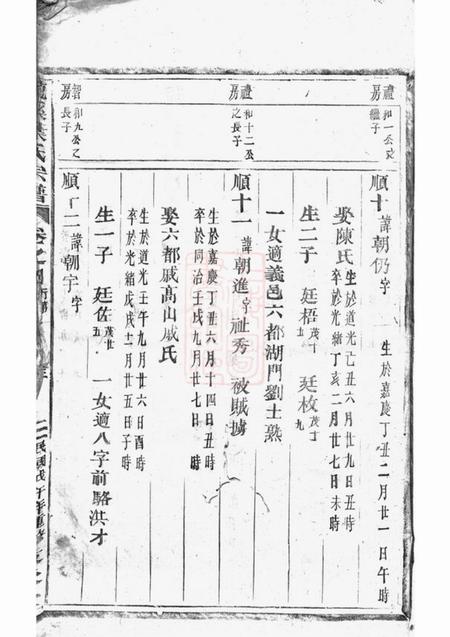 禮房
和一公之繼子
順十 諱朝仍字 生於嘉慶丁丑二月廿一日午時
娶陳氏 生於道光己丑六月廿九日丑時
卒於光緒丁亥二月廿七日未時
生二子 廷梧 茂十 廷枚 茂十九
一女適義邑六都湖門劉士熟
禮房
和十二公之長子
順十一 諱朝進字祉秀 被賊擄
生於嘉慶丁丑六月十四日丑時
卒於同治壬戌九月廿七日時
娶六都戚高山戚氏
生於道光壬午九月廿六日酉時
卒於光緒戊戌二月廿五日子時
生一子 廷佐 茂廿五 一女適八字前駱洪才
智房
和九公之長子
順十二 諱朝宇字
氏宗譜 卷之 行第 民國戊午年重修